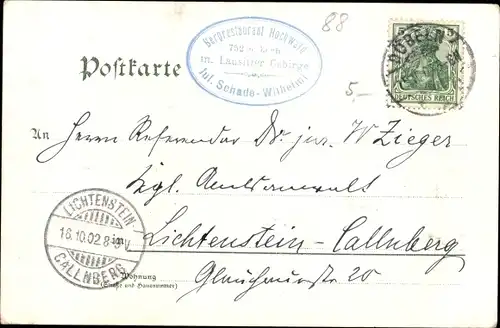 88
Bergrestaurant Hochwald
752 m hoch
im Lausitzer Gebirge
Jul. Schade-Wilhelmi
Postkarte
5,-
DÖBELN
DEUTSCHES REICH
An Herrn Referendar Dr. jur. W Zieger
Kgl. Amtsanwalt
in Lichtenstein-Callnberg
Wohnung
(Straße und Hausnummer)
Glauchauerstraße 20
LICHTENSTEIN
16.10.02 8-9V.
CALLNBERG